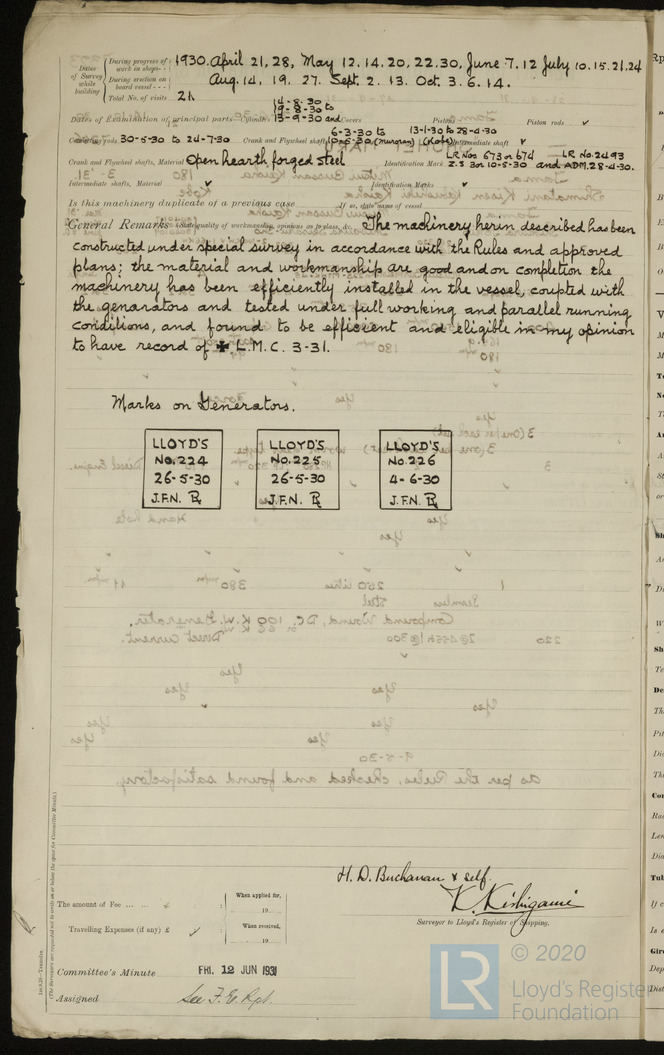 Dates of Survey while building
During progress of work in shops-- 1930. April 21, 28, May 12. 14. 20, 22. 30, June 7. 12 July 10. 15. 21. 24
During erection on board vessel--- Aug. 14, 19. 27. Sept. 2. 13. Oct. 3. 6. 14.
Total No. of visits 21
14-8-30
19-8-30 to
Dates of Examination of principal parts 13-9-30 and Covers Pistons 13-1-30 to 28-4-30 Piston rods ✓
6-3-30 to
Connecting rods 30-5-30 to 24-7-30 Crank and Flywheel shafts 10-6-30 (Kobe) Intermediate shaft ✓
Crank and Flywheel shafts, Material Open hearth forged steel Identification Mark LR Nos 673 or 674 LR No. 2493
Z.3 3 or 10-5-30 and ADM. 28-4-30.
Intermediate shafts, Material ✓ Identification Marks ✓
Is this machinery duplicate of a previous case If so, state name of vessel
General Remarks (State quality of workmanship, opinions as to class, &c. The machinery herin described has been
constructed under special survey in accordance with the Rules and approved
plans; the material and workmanship are good and on completion the
machinery has been efficiently installed in the vessel, coupled with
the genarators and tested under full working and parallel running
conditions, and found to be efficient and eligible in my opinion
to have record of ✠ L.M.C. 3-31.
Marks on Generators.
LLOYD'S
No. 224
26-5-30
J.F.N. R
LLOYD'S
No. 225
26-5-30
J.F.N. R
LLOYD'S
No. 226
4-6-30
J.F.N. R
H. D. Buchanan & self.
K. Kishigami
Surveyor to Lloyd's Register of Shipping.
The amount of Fee ... ... £ : When applied for,
19
Travelling Expenses (if any) £ ✓ : When received,
19
Committee's Minute FRI. 12 JUN 1931
Assigned See F.E. Rpt.
(The Surveyors are requested not to write on or below the space for Committee's Minute.)
LR
© 2020
Lloyd's Register
Foundation